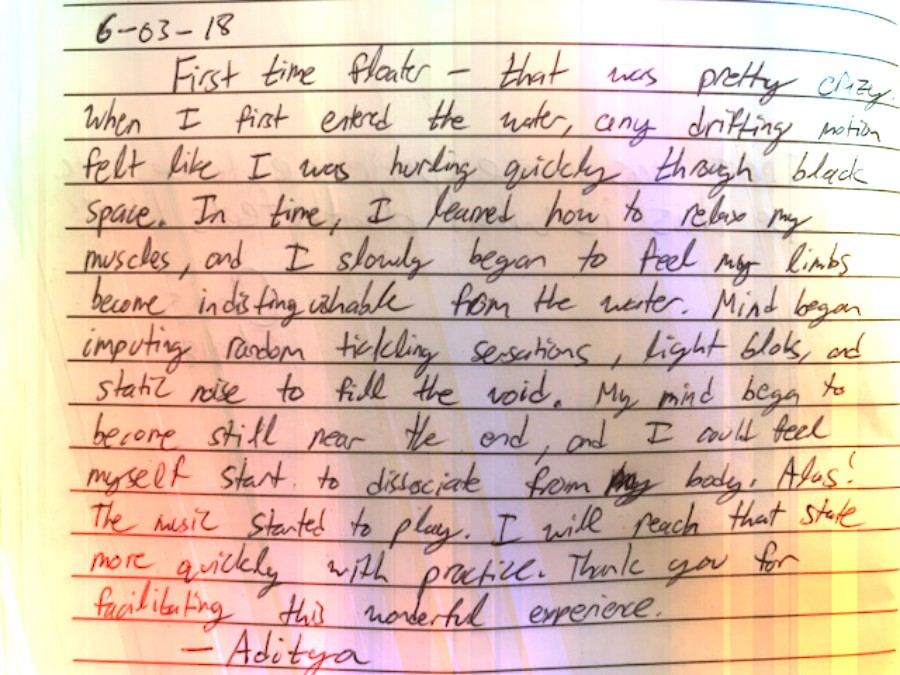 6-03-18
First time floater - that was pretty crazy.
When I first entered the water, any drifting motion
felt like I was hurling quickly through black
space. In time, I learned how to relax my
muscles, and I slowly began to feel my limbs
become indistinguishable from the water. Mind began
imputing random tickling sensations, light blobs, and
static noise to fill the void. My mind began to
become still near the end, and I could feel
myself start to dissociate from my body. Alas!
The music started to play. I will reach that state
more quickly with practice. Thank you for
facilitating this wonderful experience.
- Aditya